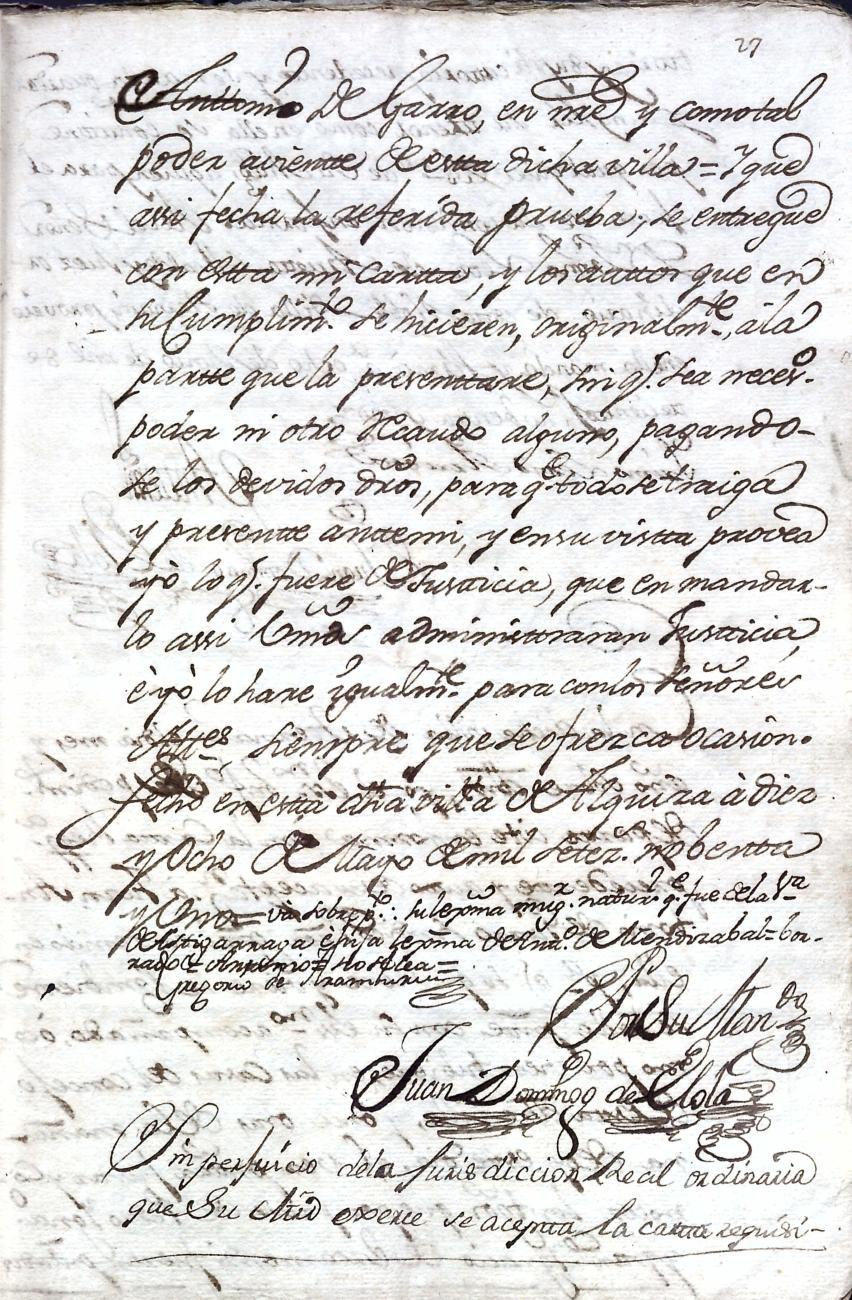 27
Anttonio De Garro, en nre y como tal
poder aviente de estta dicha villa = Y que
assi fecha la referida prueba, se entregue
con estta mi cartta, y los auttos que en
su Cumplim.to se hicieren, originalm.te, a la
partte que la presenttare, sin q.e sea neces.o
poder ni otro Recaudo alguno, pagando-
se los devidos dr̃os, para q.e todo se traiga
y presentte antte mi, y en su vistta provea
yò lo q.e fuere de Justticia, que en mandar-
lo assi Vm̃ds administtraran Justticia,
è yò lo hare igualm.te para con los Señores
siempre que se ofrezca ocasion.
fecho en estta dha villa de Alquiza à diez
y Ocho de Mayo de mil setez.s nobentta
y Uno = vâ sobrep.to: su lexma mug.r natur.l q.e fue de la V.a
de Astigarraga è hija lexma de Ant.o de Mendizabal = bor-
rado = Antonio = no se lea =
Gregorio de Yramturria
Por Su Man.do
Juan Domingo de Elola
Sin perjuicio de la Jurisdiccion Real ordinaria
que Su Mrd exerce se acepta la carta requisi-